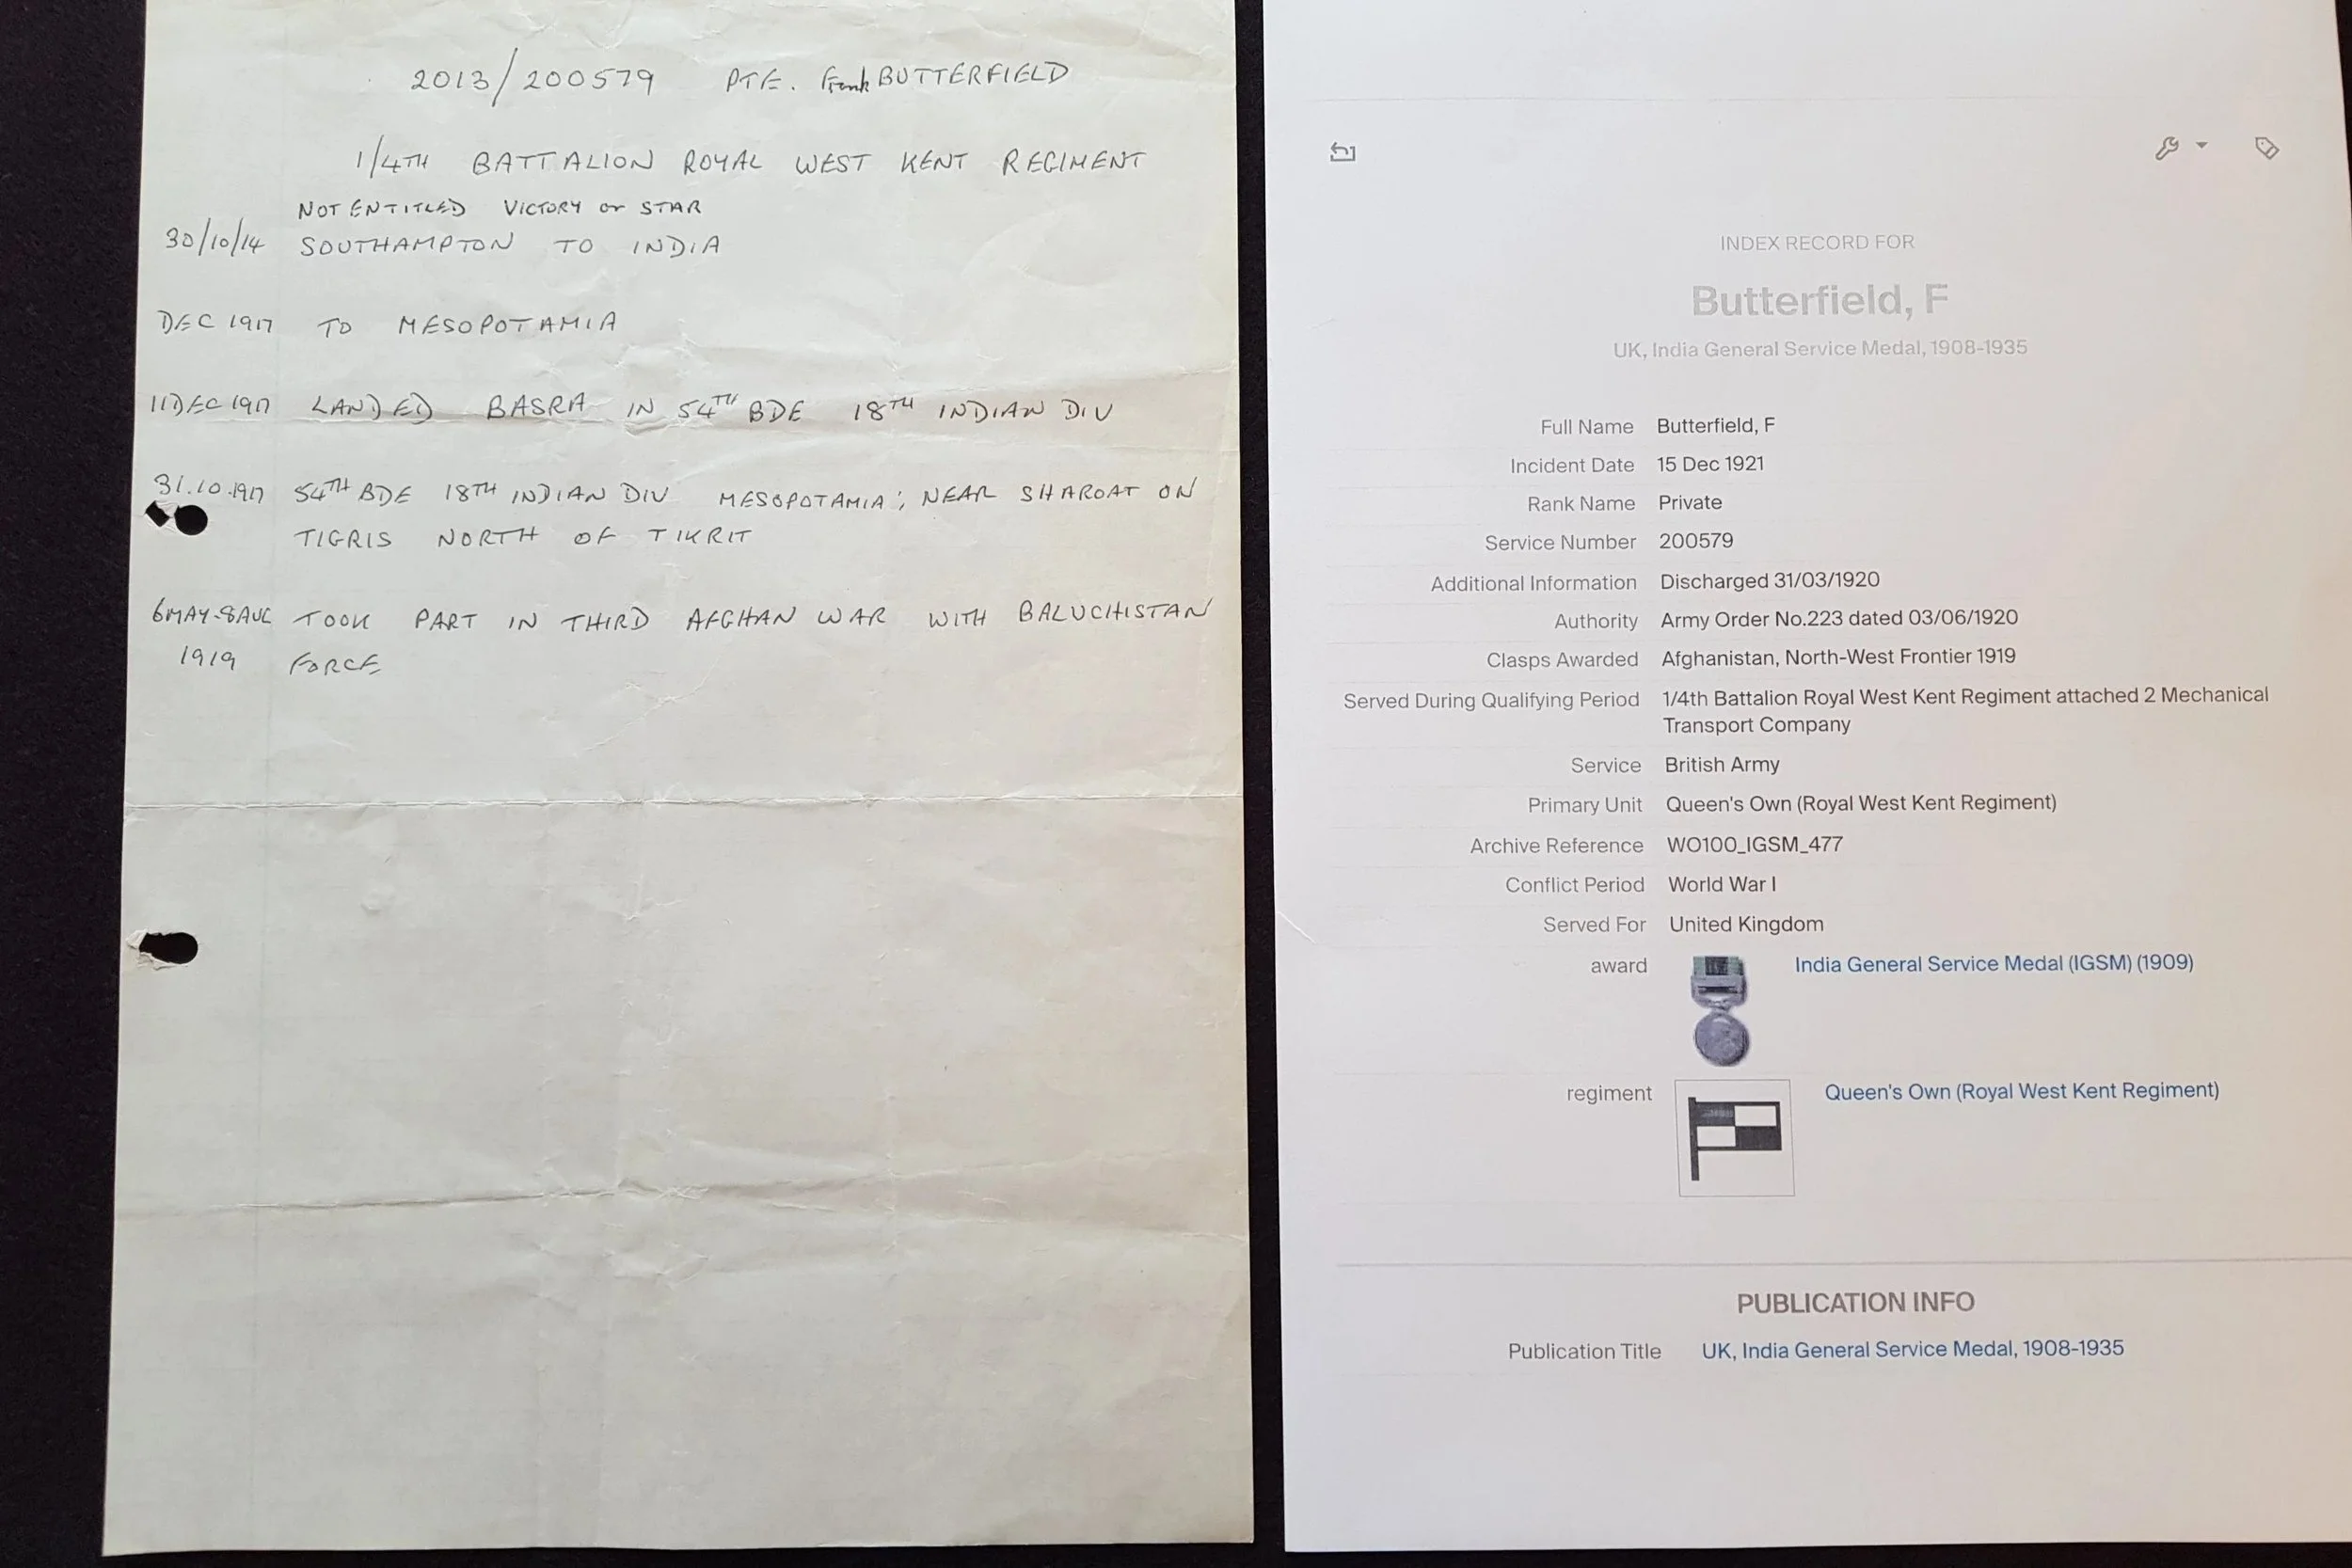 2013/200579 PTE. Frank BUTTERFIELD
1/4TH BATTALION ROYAL WEST KENT REGIMENT
NOT ENTITLED VICTORY or STAR
30/10/14 SOUTHAMPTON TO INDIA
DEC 1917 TO MESOPOTAMIA
11DEC 1917 LANDED BASRA IN 54TH BDE 18TH INDIAN DIV
31.10.1917 54TH BDE 18TH INDIAN DIV MESOPOTAMIA; NEAR SHAROAT ON
TIGRIS NORTH OF TIKRIT
6MAY-8AUG TOOK PART IN THIRD AFGHAN WAR WITH BALUCHISTAN
1919 FORCE
INDEX RECORD FOR
Butterfield, F
UK, India General Service Medal, 1908-1935
Full Name Butterfield, F
Incident Date 15 Dec 1921
Rank Name Private
Service Number 200579
Additional Information Discharged 31/03/1920
Authority Army Order No.223 dated 03/06/1920
Clasps Awarded Afghanistan, North-West Frontier 1919
Served During Qualifying Period 1/4th Battalion Royal West Kent Regiment attached 2 Mechanical
Transport Company
Service British Army
Primary Unit Queen's Own (Royal West Kent Regiment)
Archive Reference WO100_IGSM_477
Conflict Period World War I
Served For United Kingdom
award India General Service Medal (IGSM) (1909)
regiment Queen's Own (Royal West Kent Regiment)
PUBLICATION INFO
Publication Title UK, India General Service Medal, 1908-1935